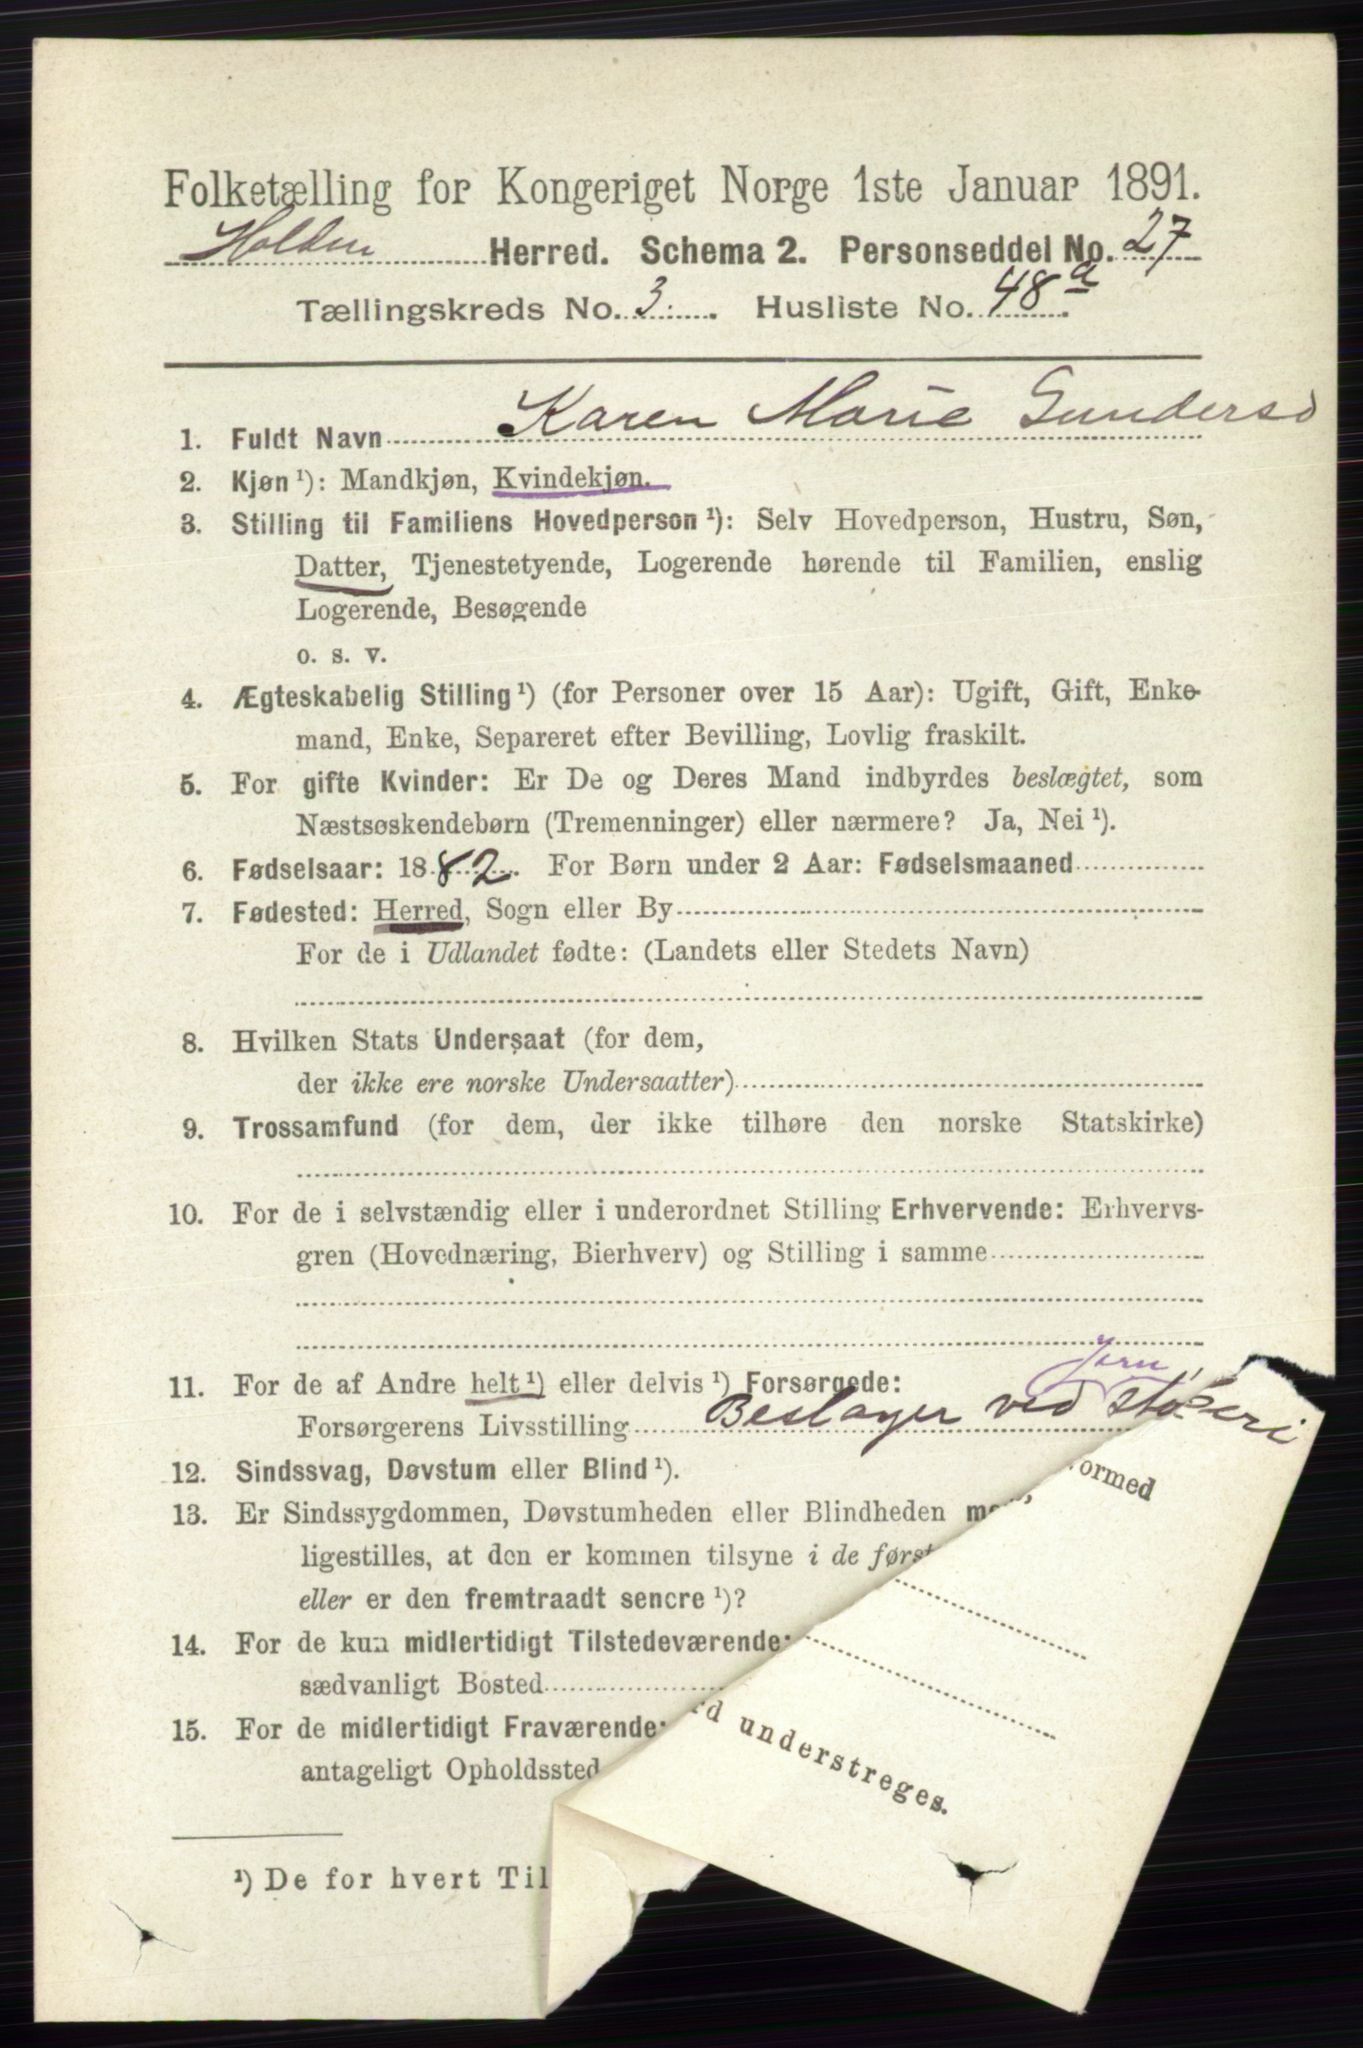 Folketælling for Kongeriget Norge 1ste Januar 1891.
Holden Herred. Schema 2. Personseddel No. 27
Tællingskreds No. 3. Husliste No. 48 a
1. Fuldt Navn Karen Marie Gunders
2. Kjøn ¹): Mandkjøn, Kvindekjøn.
3. Stilling til Familiens Hovedperson ¹): Selv Hovedperson, Hustru, Søn,
Datter, Tjenestetyende, Logerende hørende til Familien, enslig
Logerende, Besøgende
o. s. v.
4. Ægteskabelig Stilling ¹) (for Personer over 15 Aar): Ugift, Gift, Enke-
mand, Enke, Separeret efter Bevilling, Lovlig fraskilt.
5. For gifte Kvinder: Er De og Deres Mand indbyrdes beslægtet, som
Næstsøskendebørn (Tremenninger) eller nærmere? Ja, Nei ¹).
6. Fødselsaar: 1882. For Børn under 2 Aar: Fødselsmaaned
7. Fødested: Herred, Sogn eller By
For de i Udlandet fødte: (Landets eller Stedets Navn)
8. Hvilken Stats Undersaat (for dem,
der ikke ere norske Undersaatter)
9. Trossamfund (for dem, der ikke tilhøre den norske Statskirke)
10. For de i selvstændig eller i underordnet Stilling Erhvervende: Erhvervs-
gren (Hovednæring, Bierhverv) og Stilling i samme
Jern
11. For de af Andre helt ¹) eller delvis ¹) Forsørgede:
Forsørgerens Livsstilling Beslager ved støberi
12. Sindssvag, Døvstum eller Blind ¹).
13. Er Sindssygdommen, Døvstumheden eller Blindheden
ligestilles, at den er kommen tilsyne i de først
eller er den fremtraadt senere ¹)?
14. For de kun midlertidigt Tilstedeværende:
sædvanligt Bosted
15. For de midlertidigt Fraværende:
antageligt Opholdssted
¹) De for hvert Til
vormed
rd understreges.